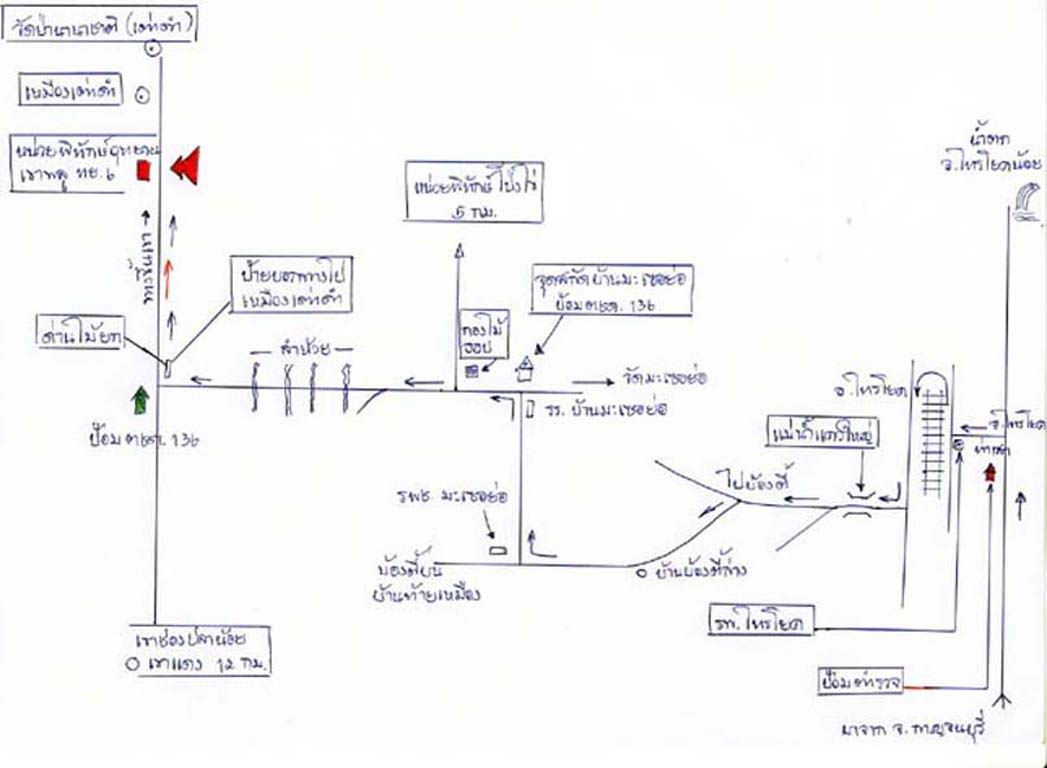 วัดป่านานาชาติ (เต่าดำ)
เหมืองเต่าดำ
หน่วยพิทักษ์อุทยาน
เขาพลู ทย. 6
น้ำตก
จ.ไทรโยคน้อย
หน่วยพิทักษ์ โป่งไร่
5 กม.
ป้ายบอกทางไป
เหมืองเต่าดำ
จุดสกัดบ้านมะเซอย่อ
ป้อม ตชด. 136
กองไม้
ด่านไม้ยก
ลำห้วย
วัดมะเซอย่อ
รร. บ้านมะเซอย่อ
ป้อม ตชด. 136
อ.ไทรโยค
อ.ไทรโยค
แม่น้ำแควใหญ่
ไปบ้องตี้
รพช. มะเซอย่อ
บ้องตี้บน
บ้านท้ายเหมือง
บ้านบ้องตี้ล่าง
รพ. ไทรโยค
เขาช่องปลาน้อย
เขาแดง 12 กม.
ป้อมตำรวจ
มาจาก จ. กาญจนบุรี